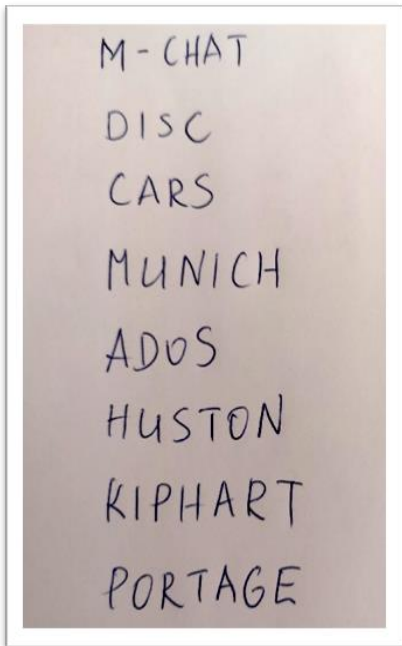 M-CHAT
DISC
CARS
MUNICH
ADOS
HUSTON
KIPHART
PORTAGE